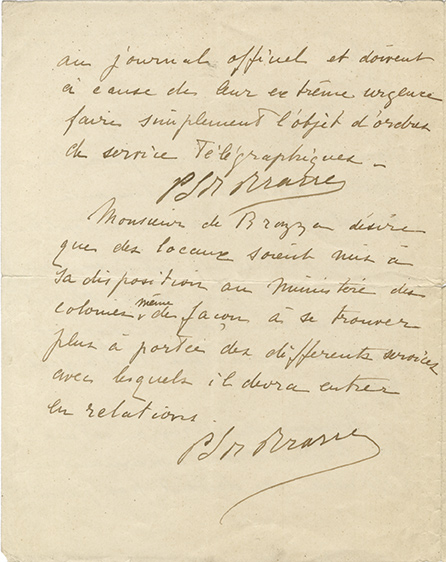 au journal officiel et doivent
à cause de leur extrême urgence
faire simplement l'objet d'ordres
de service télégraphiques _
P S de Brazza
Monsieur de Brazza désire
que des locaux soient mis à
sa disposition au Ministère des
colonies même de façon à se trouver
plus à portée des différents services
avec lesquels il devra entrer
en relations.
P S de Brazza